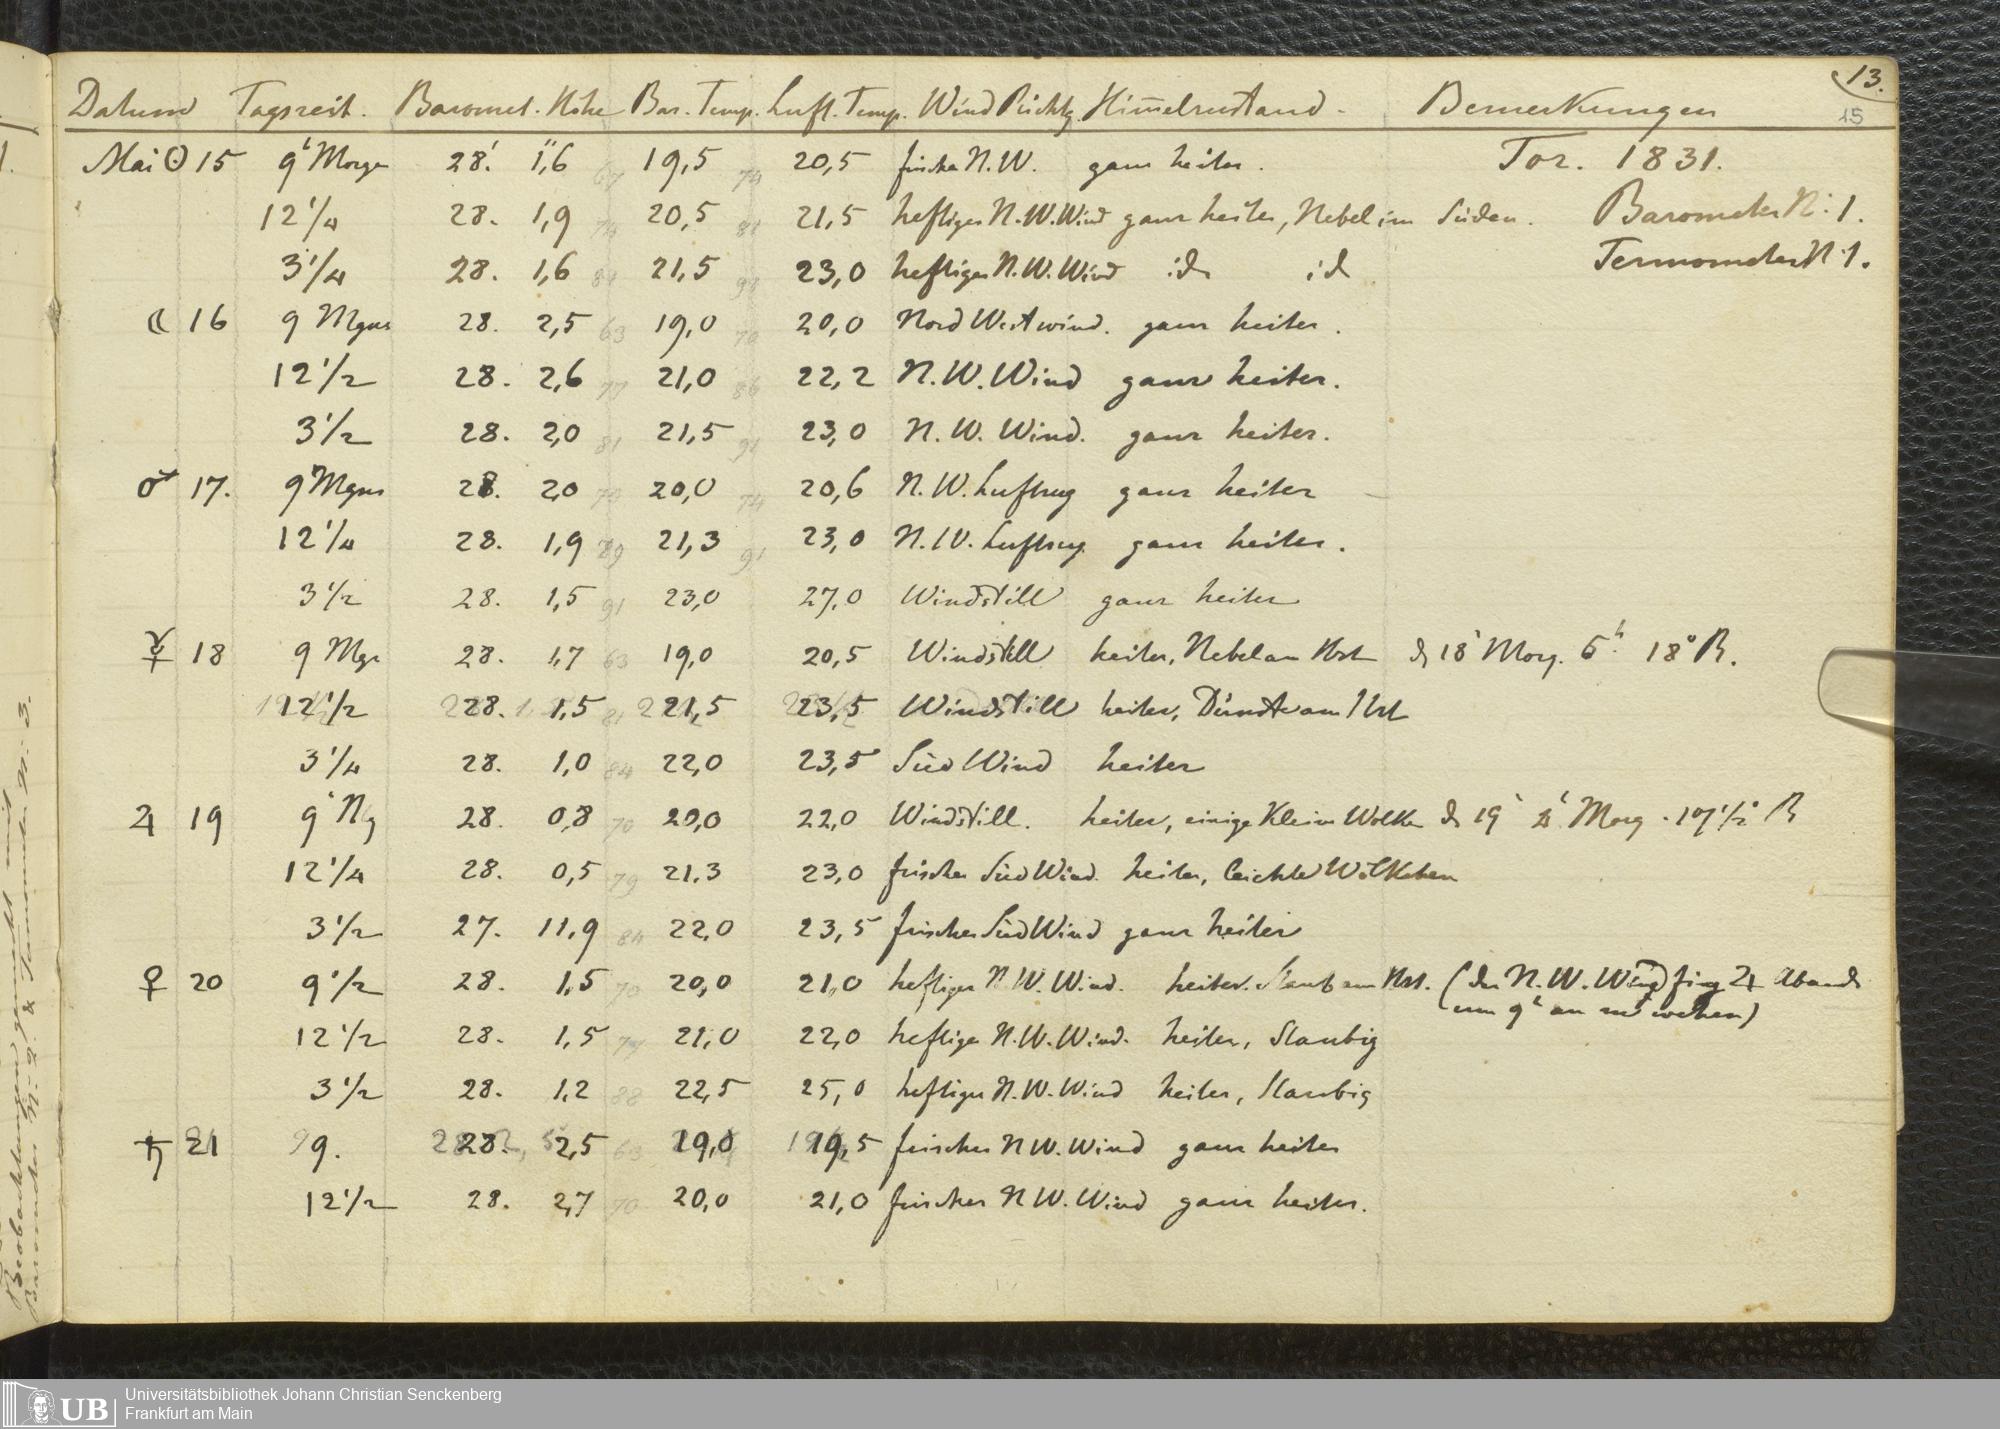 13.
15
Datum Tagszeit. Baromet. Höhe Bar. Temp. Luft. Temp. Wind Richtg. Him̄elzustand. Bemerkungen
Mai ☉ 15 9h Morgs 28.' 1,"6 67 19,5 74 20,5 frischer N.W. ganz heiter. Tor. 1831.
12 1/4 28. 1,9 74 20,5 81 21,5 heftiger N.W. Wind ganz heiter, Nebel im Süden. Barometer N: 1.
3 1/4 28. 1,6 81 21,5 91 23,0 heftiger N.W. Wind id id Termometer N: 1.
☾ 16 9 Mgns 28. 2,5 63 19,0 70 20,0 Nord West wind. ganz heiter.
12 1/2 28. 2,6 77 21,0 86 22,2 N.W. Wind ganz heiter.
3 1/2 28. 2,0 81 21,5 91 23,0 N.W. Wind. ganz heiter.
♂ 17. 9h Mgns 28. 2,0 70 20,0 74 20,6 N.W. Luftzug ganz heiter
12 1/4 28. 1,9 79 21,3 91 23,0 N.W. Luftzug. ganz heiter.
3 1/2 28. 1,5 91 23,0 27,0 Windstill ganz heiter
☿ 18 9 Mgs 28. 1,7 63 19,0 20,5 Windstill heiter, Nebel am Hzt d 18t Morg. 6h. 18° R.
12 1/2 28. 1,5 81 21,5 23,5 Windstill heiter, Dünste am Hzt
3 1/4 28. 1,0 84 22,0 23,5 Süd Wind heiter
♃ 19 9h Mg 28. 0,8 70 20,0 22,0 Windstill. heiter, einige kleine Wolken d 19t Morg. 17 1/2° R
12 1/4 28. 0,5 79 21.3 23,0 frischer Süd Wind. heiter, leichte Wölkchen
3 1/2 27. 11,9 84 22,0 23,5 frischer Süd Wind ganz heiter
♀ 20 9 1/2 28. 1,5 70 20,0 21,0 heftiger N.W. Wind. heiter. Staub am Hzt. (der N.W. Wind fing ♃ Abends
um 9h an zu wehen)
12 1/2 28. 1,5 77 21,0 22,0 heftiger N.W. Wind. heiter, Staubig
3 1/2 28. 1.2 88 22,5 25,0 heftiger N.W. Wind heiter, Staubig
♄ 21 9. 28. 2,5 63 19,0 19,5 frischer N W. Wind ganz heiter
12 1/2 28. 2,7 70 20,0 21,0 frischer N W. Wind ganz heiter.
Beobachtungen gemacht mit
Barometer N: 2. & Termometer N: 3.
UB
Universitätsbibliothek Johann Christian Senckenberg
Frankfurt am Main